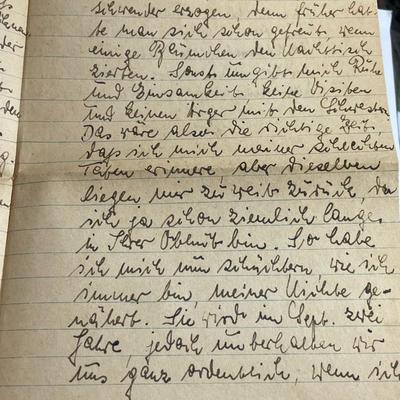 schwender erzogen, denn früher hat-
te man sich schon gefreut, wenn
einige Blümchen den Nachttisch
zierten. Sonst umgibt mich Ruhe
und Einsamkeit keine Visiten
und keinen Ärger mit den Schwestern.
Das wäre also die richtige Zeit,
daß ich mich meiner schlechten
Taten erinnere aber dieselben
liegen mir zu weit zurück, da
ich ja schon ziemlich lange
in Ihrer Obhut bin. So habe
ich mich nun schüchtern, wie ich
immer bin, meiner Nichte ge-
nähert. Sie wird im Sept. zwei
Jahre, jedoch unterhalten wir
uns ganz ordentlich, wenn sich